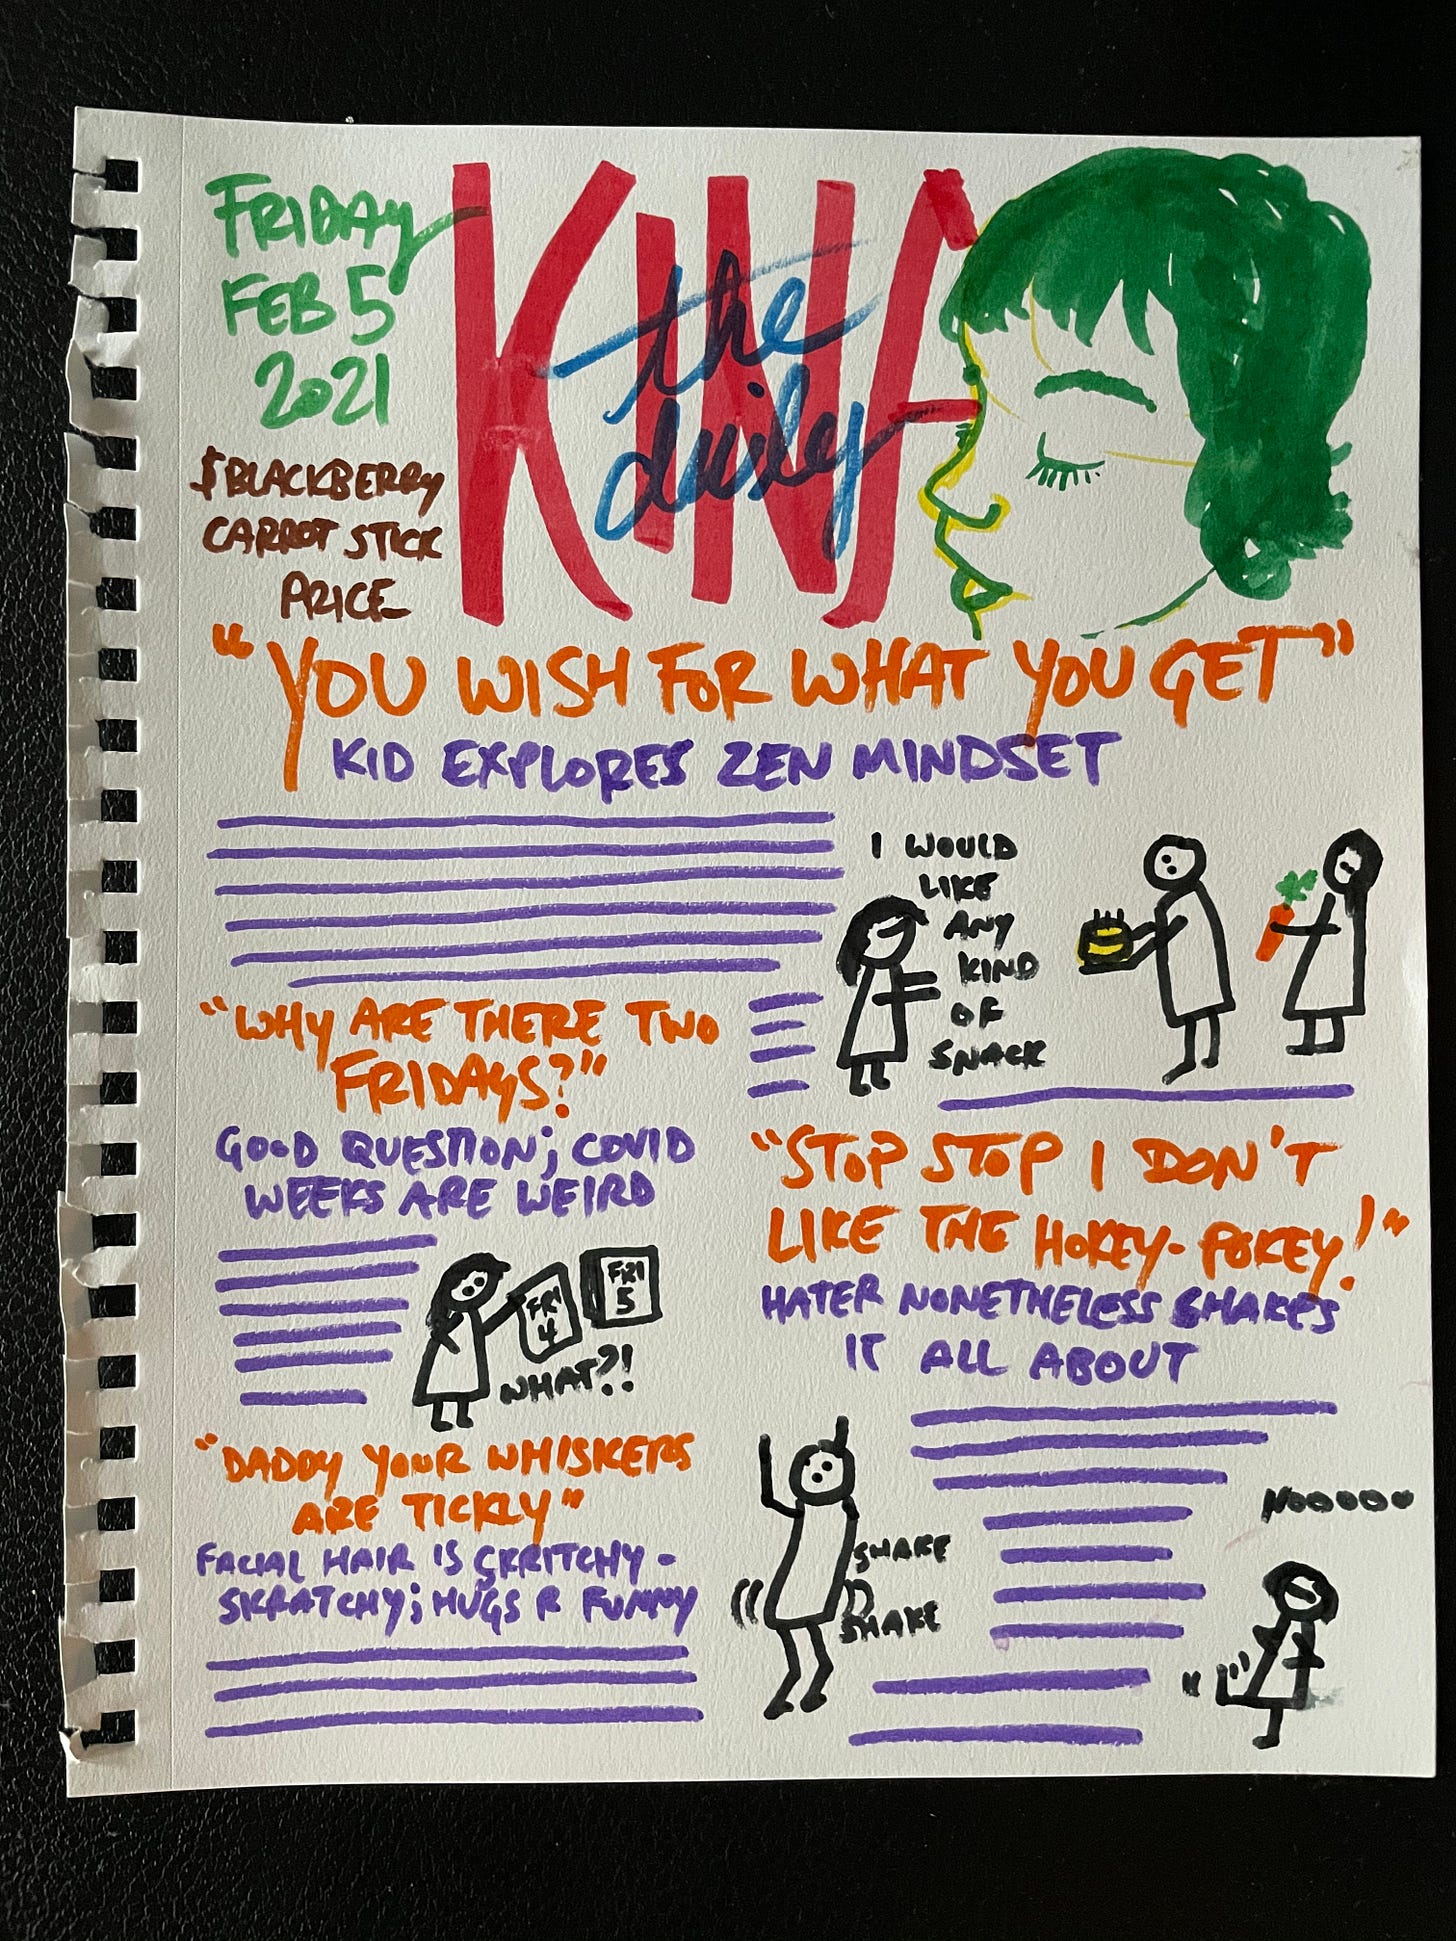 FRIDAY
FEB 5
2021
$BLACKBERRY
CARROT STICK
PRICE
the
daily
KINA
"YOU WISH FOR WHAT YOU GET"
KID EXPLORES ZEN MINDSET
I WOULD
LIKE
ANY
KIND
OF
SNACK
"WHY ARE THERE TWO
FRIDAYS?"
GOOD QUESTION; COVID
WEEKS ARE WEIRD
FRI
4
FRI
5
WHAT?!
"STOP STOP I DON'T
LIKE THE HOKEY-POKEY!"
HATER NONETHELESS SHAKES
IT ALL ABOUT
SHAKE
SHAKE
NOOOOO
"DADDY YOUR WHISKERS
ARE TICKLY"
FACIAL HAIR IS SKRITCHY-
SKRATCHY; HUGS R FUNNY